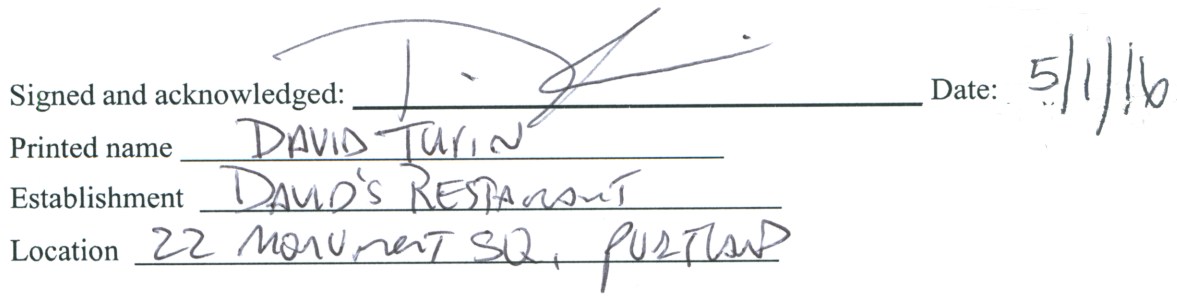 Signed and acknowledged: Date: 5/1/16
Printed name DAVID TURIN
Establishment DAVID'S RESTAURANT
Location 22 MONUMENT SQ, PORTLAND